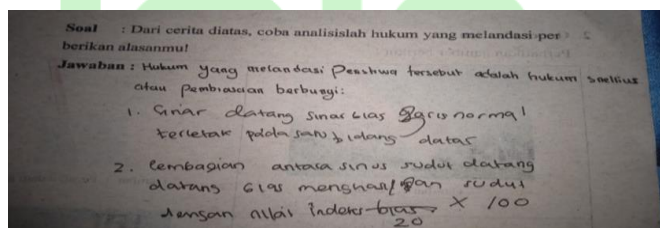 Soal : Dari cerita diatas, coba analisislah hukum yang melandasi per
berikan alasanmu!
Jawaban : Hukum yang melandasi Peristiwa tersebut adalah hukum snellius
atau Pembiasan berbunyi:
1. Sinar datang sinar bias garis normal
terletak pada satu bidang datar
2. Pembagian antara sinus sudut datang
datang bias menghasilkan sudut
dengan nilai indeks bias × 100
20